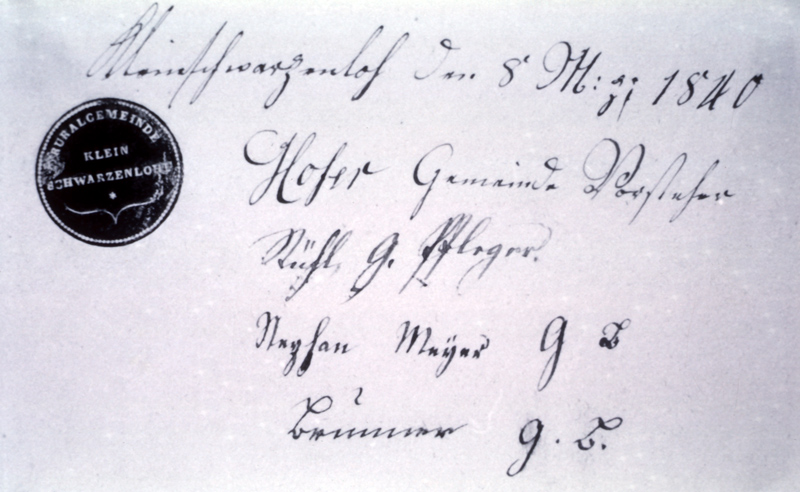 Kleinschwarzenloh den 8 M: 1840
RURALGEMEINDE
KLEIN
SCHWARZENLOHE
Hofer Gemeinde Vorsteher
Rühl, G. Pfleger.
Stephan Meyer G B
Brunner G. B.